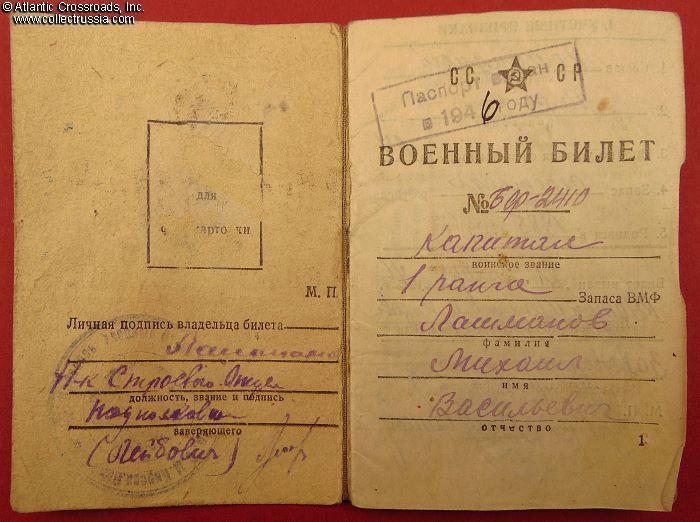 © Atlantic Crossroads, Inc.
www.collectrussia.com
для
М. П.
Личная подпись владельца билета
Н-к Строевого Отдел
должность, звание и подпись
заверяющего
(Лейбович)
СС СР
Паспорт
в 1946 году
ВОЕННЫЙ БИЛЕТ
№
Капитан
воинское звание
1 ранга Запаса ВМФ
Лашманов
фамилия
Михаил
имя
Васильевич
отчество
1